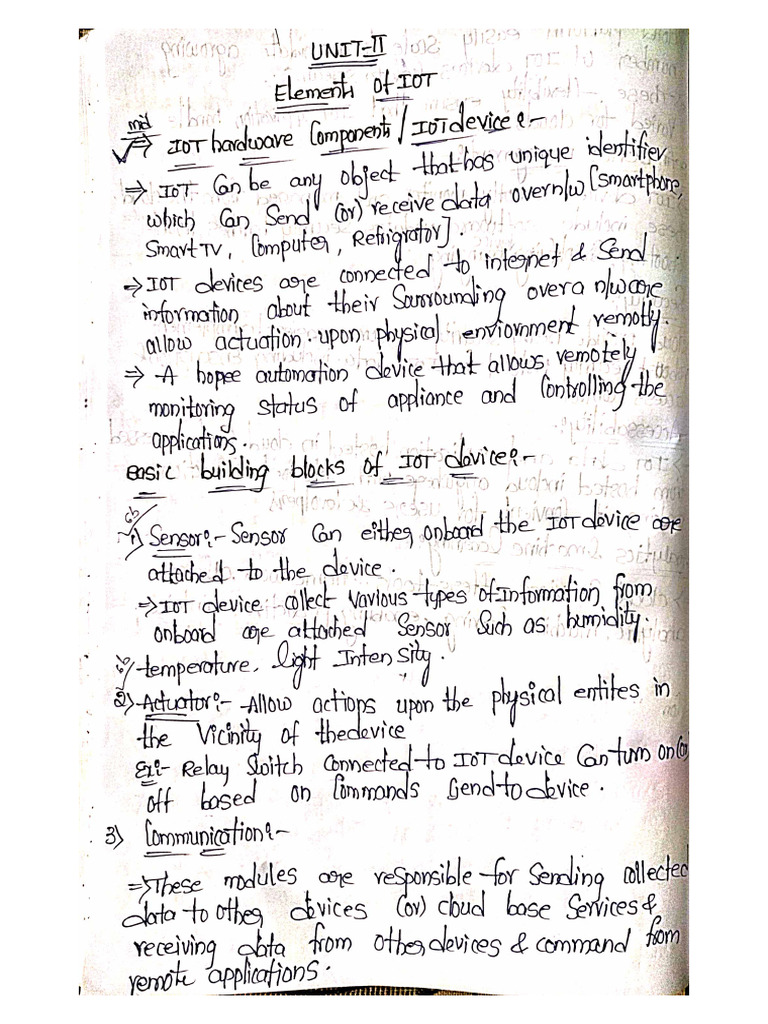 UNIT-II
Elements of IOT
mid
=> IOT hardware Components / IOT device :-
=> IOT can be any object that has unique identifier
which can send (or) receive data over n/w [smartphone,
Smart TV, Computer, Refrigrator].
=> IOT devices are connected to internet & send
information about their Surrounding over a n/w are
allow actuation upon physical enviornment remotly.
=> A hopee automation device that allows remotely
monitoring status of appliance and Controlling the
applications.
easic building blocks of IOT device :-
1) Sensor :- Sensor can either onboard the IOT device are
attached to the device.
=> IOT device collect various types of Information from
onboard are attached Sensor Such as humidity.
temperature, light Intensity.
2) Actuator :- Allow actiops upon the physical entites in
the Vicinity of thedevice
Ex :- Relay Switch connected to IOT device can turn on (or)
off based on Commands Send to device.
3) Communication :-
=> These modules are responsible for Sending collected
data to other devices (or) cloud base Services &
receiving data from other devices & command from
remote applications.